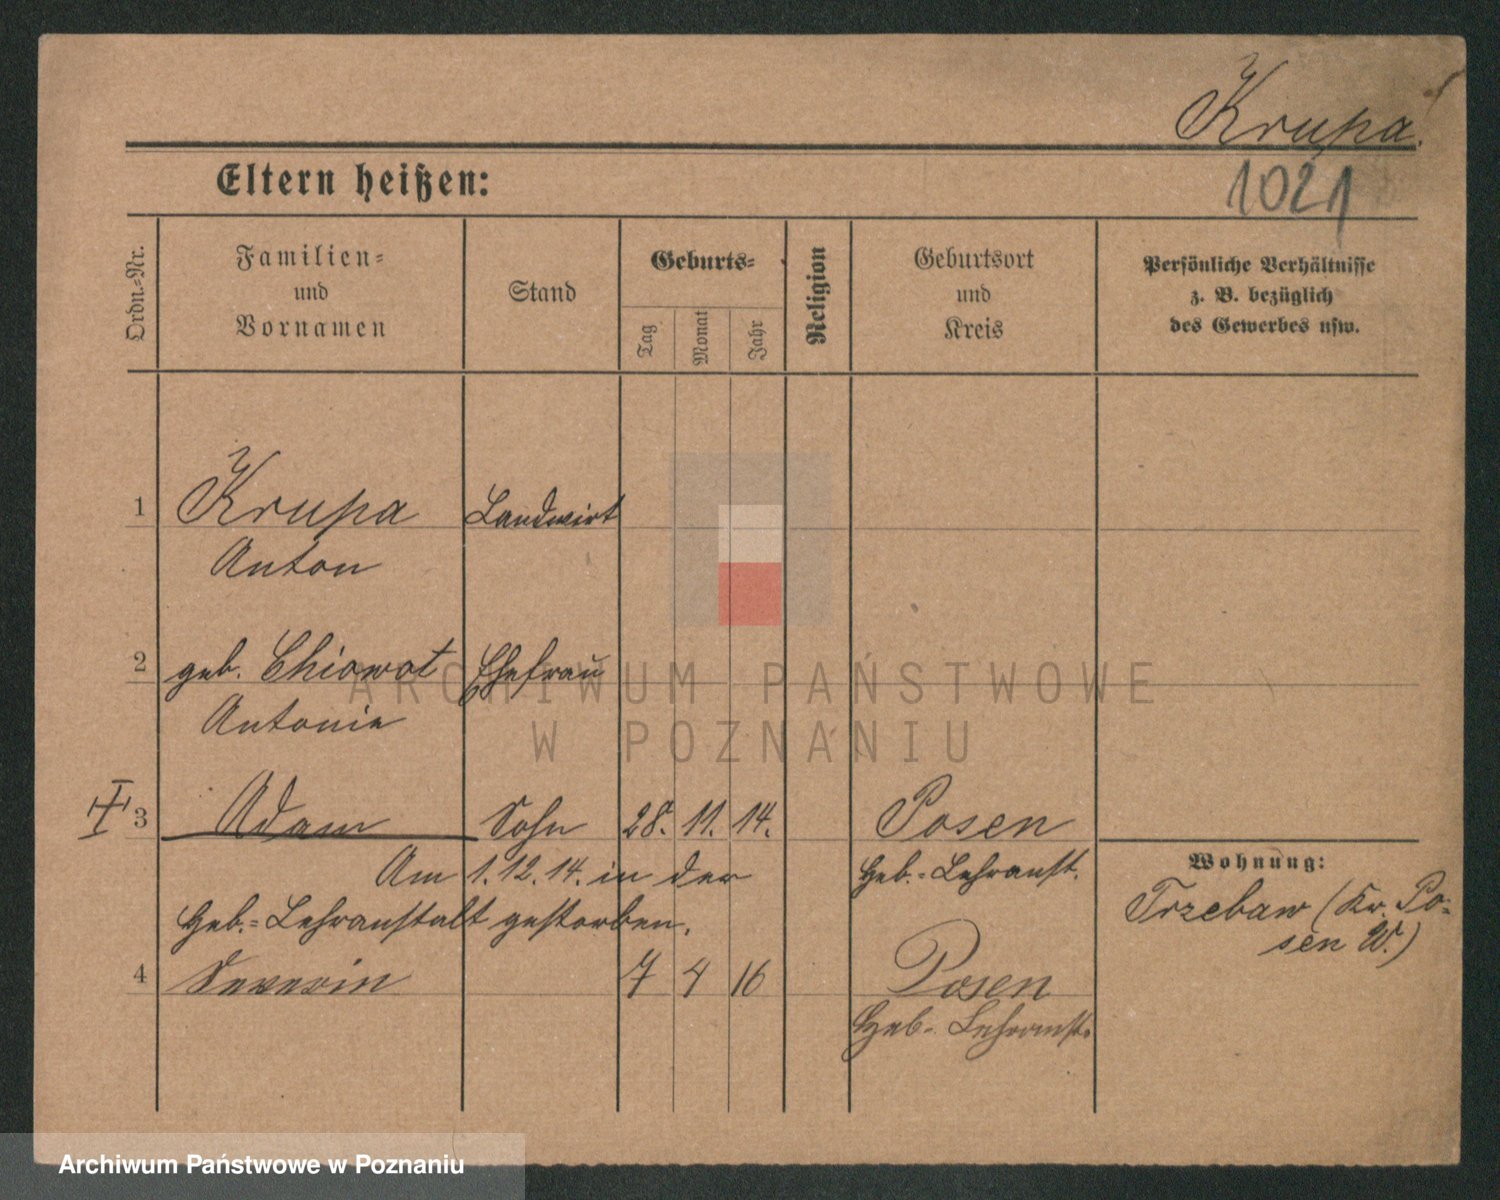 Krupa.
1021
Eltern heißen:
Ordn.-Nr.
Familien-
und
Vornamen
Stand
Geburts-
Tag
Monat
Jahr
Religion
Geburtsort
und
Kreis
Persönliche Verhältnisse
z. B. bezüglich
des Gewerbes usw.
1 Krupa Landwirt
Anton
2 geb. Chiowot Ehefrau
Antonie
3 Adam Sohn 28. 11. 14. Posen
Heb.-Lehranst.
Am 1. 12. 14. in der
Heb.-Lehranstalt gestorben.
Wohnung:
Trzebaw (Kr. Po-
sen W.)
4 Severin 7 4 16 Posen
Heb.-Lehranst.
ARCHIWUM PAŃSTWOWE
W POZNANIU
Archiwum Państwowe w Poznaniu